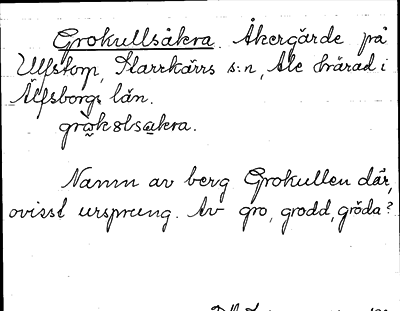 Grokullsåkra. Åkergärde på
Ulfstorp, Starrkärrs s:n, Ale härad i
Älfsborgs län.
Namn av berg Grokullen där,
ovisst ursprung. Av gro, grodd, gröda?